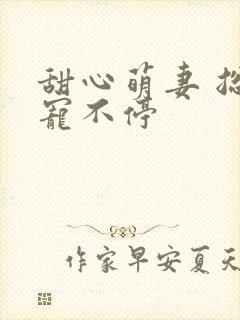 甜心萌妻
寵不停
作家早安夏天